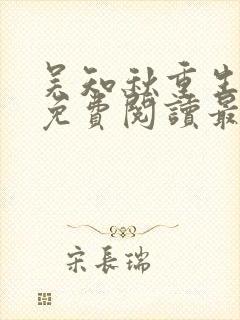 吴知秋重生
免費閱讀最
宋長瑞